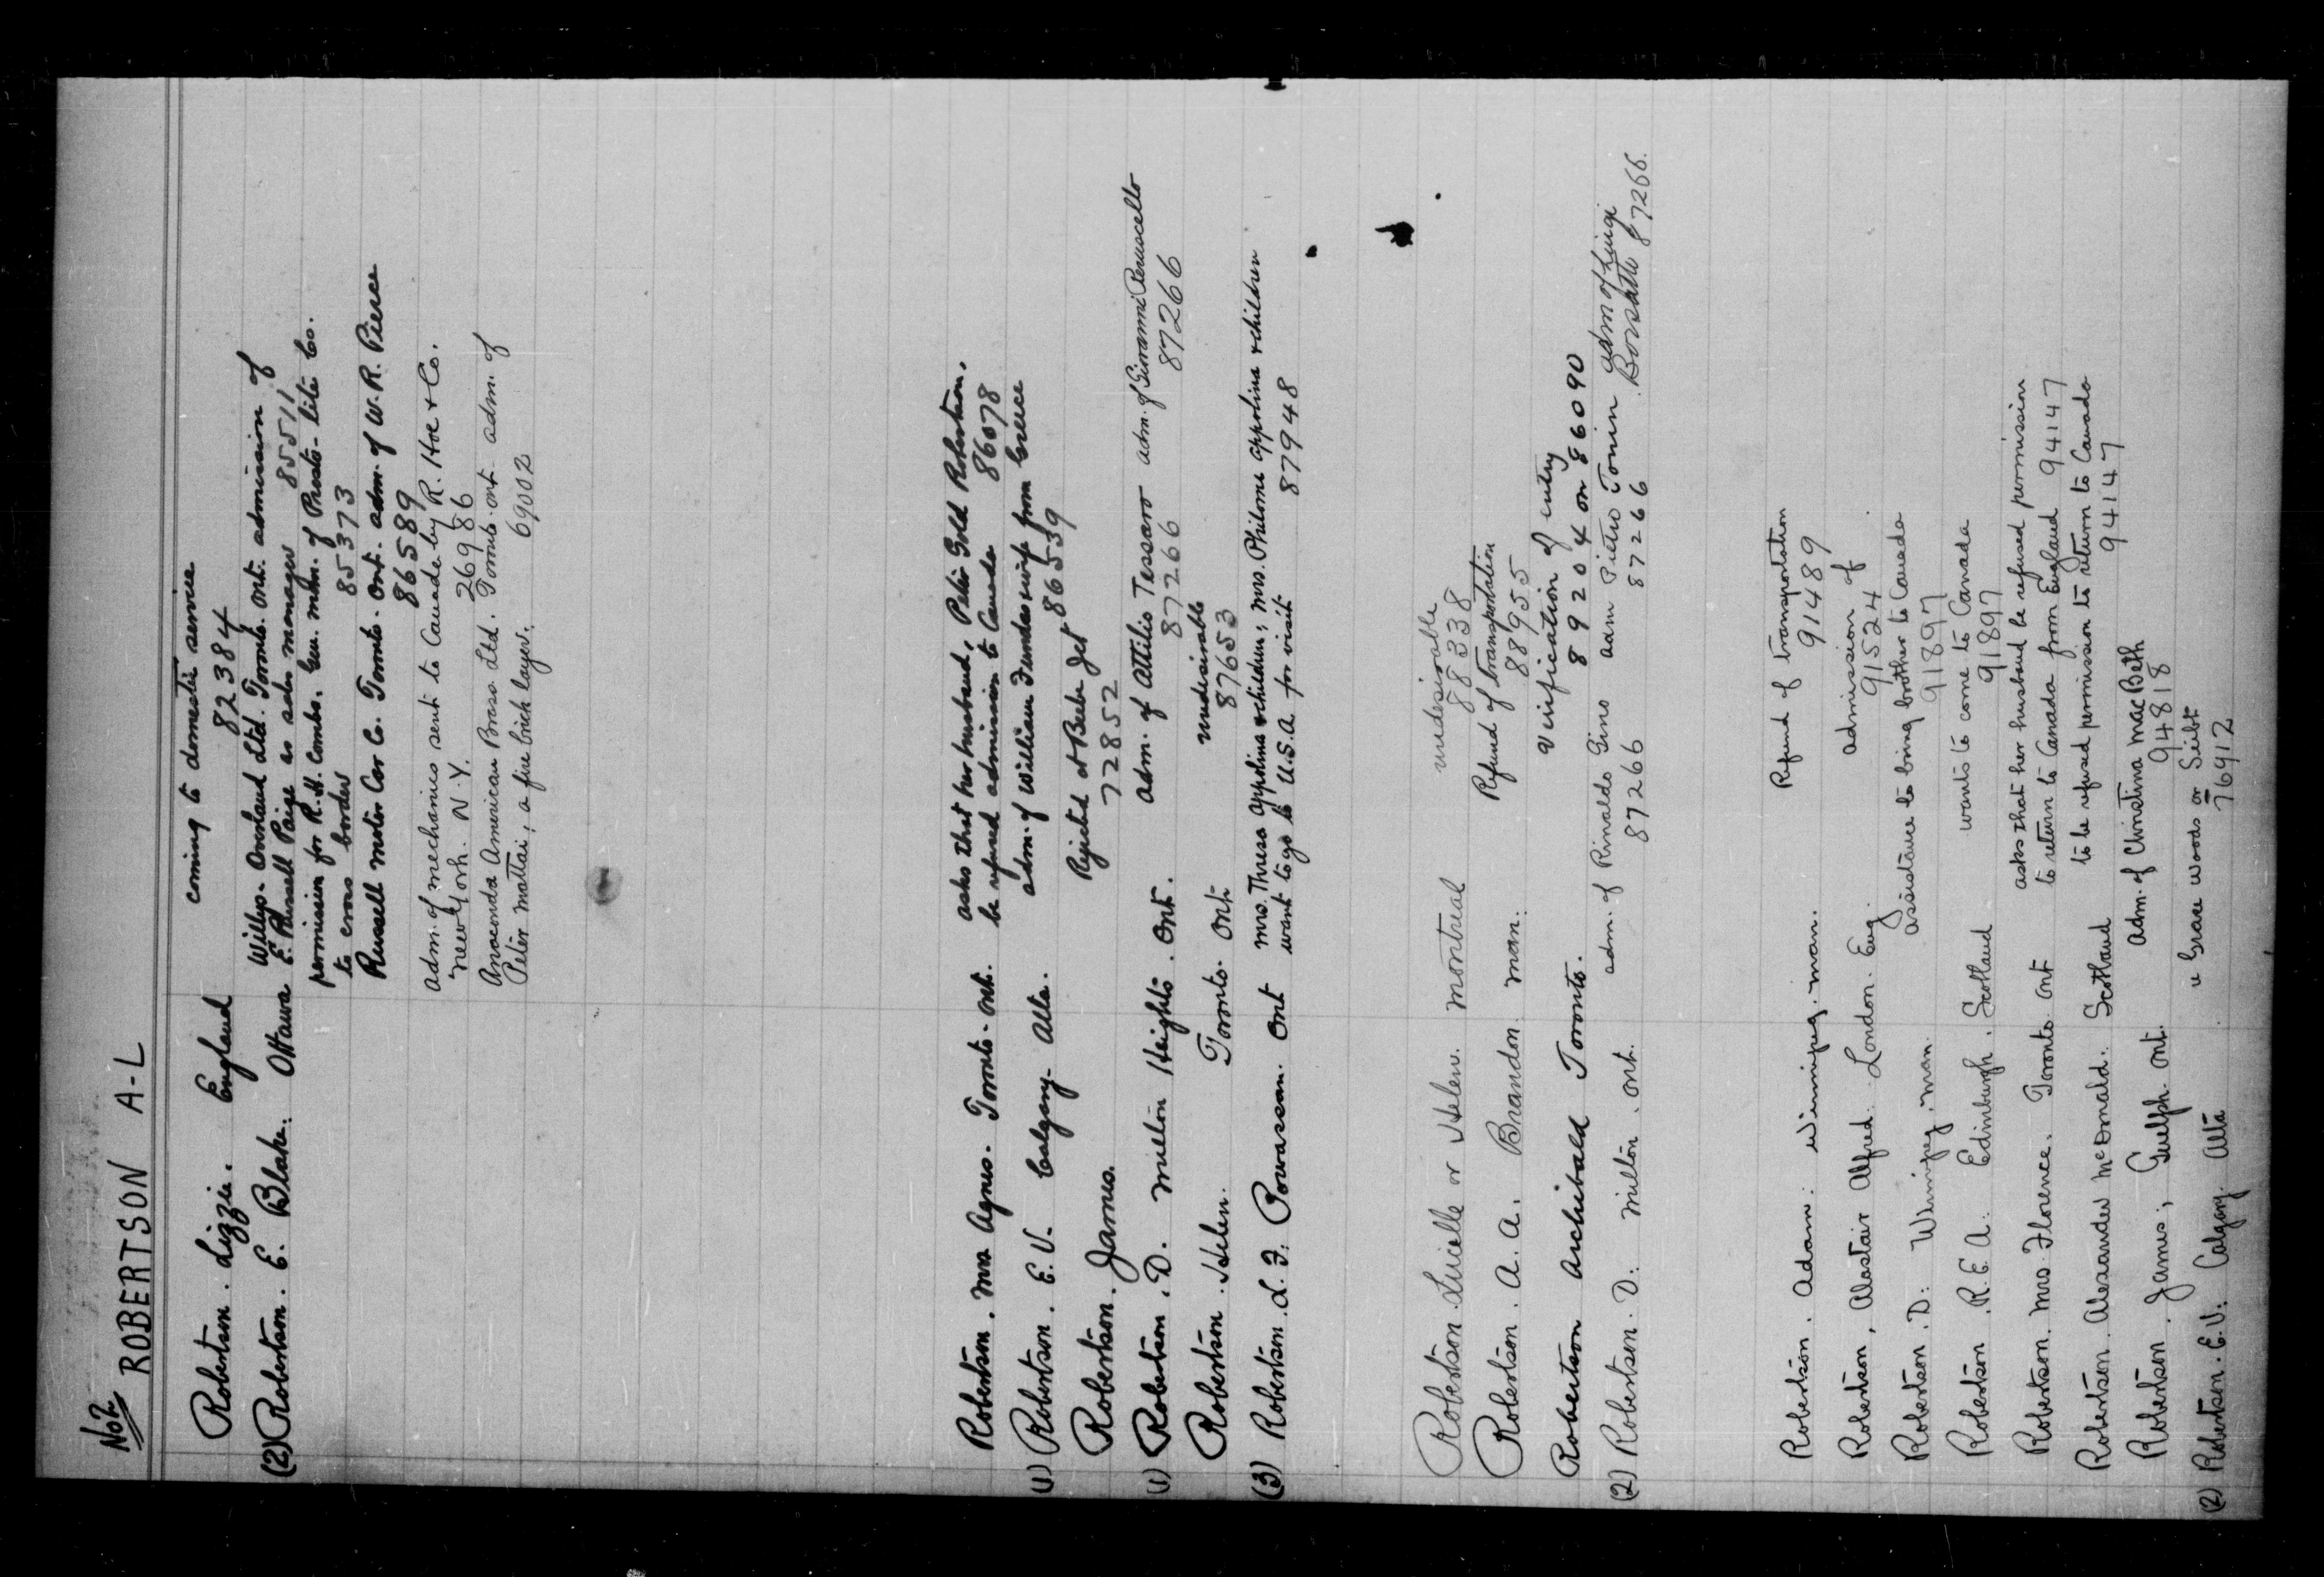 No 2
ROBERTSON A-L
Robertson. Lizzie. England coming to domestic service
82384
(2) Robertson. E. Blake. Ottawa Willys-Overland Ltd. Toronto. Ont. admission of
E. Russell Paige as sales manager 85511
permission for R.H. Combs. Gen. man. of Presto-lite Co.
to cross border 85373
Russell Motor Car Co. Toronto. Ont. adm. of W.R. Pierce
86589
adm. of mechanics sent to Canada by R. Hoe & Co.
New York. N.Y. 26986
Anaconda American Brass Ltd. Toronto. Ont. adm. of
Peter Mattai, a fire brick layer. 69002
Robertson. Mrs Agnes. Toronto. Ont. asks that her husband, Peter Gold Robertson,
be refused admission to Canada 86078
(1) Robertson. E.V. Calgary. Alta. adm. of William Dundas wife from Greece
86539
Robertson. James. Rejected at Beebe Jct
728 852
(1) Robertson. D. Milton Heights. Ont. adm. of Attilio Tessaro adm. of Giovanni
87266 87266
Robertson. Helen. Toronto. Ont undesirable
87653
(3) Robertson. L.F. Powassan. Ont Mrs. Thresa Appolina & children; Mrs. Philoma Appolina & children
want to go to U.S.A. for visit 87948
Robertson. Lucille or Helen. Montreal undesirable
88338
Robertson. A.A. Brandon. Man. Refund of transportation
88955
Robertson Archibald Toronto. Verification of entry
89204 on 86090
(2) Robertson. D. Milton. Ont. adm. of Rinaldo Gino adm Pietro Tonin adm of Luigi
87266 87266 87266.
Robertson. Adam. Winnipeg. Man. Refund of transportation
91489
Robertson, Alastair Alfred. London. Eng. admission of
91524
Robertson. D. Winnipeg. Man. assistance to bring brother to Canada
91897
Robertson. R.E.A. Edinburgh. Scotland wants to come to Canada
91897
Robertson. Mrs Florence. Toronto. Ont asks that her husband be refused permission
to return to Canada from England 94147
Robertson. Alexander McDonald. Scotland to be refused permission to return to Canada
94147
Robertson. James, Guelph. Ont. Adm. of Christina MacBeth
94818
(2) Robertson. E.V. Calgary. Alta Grace Woods or Seibt
76912